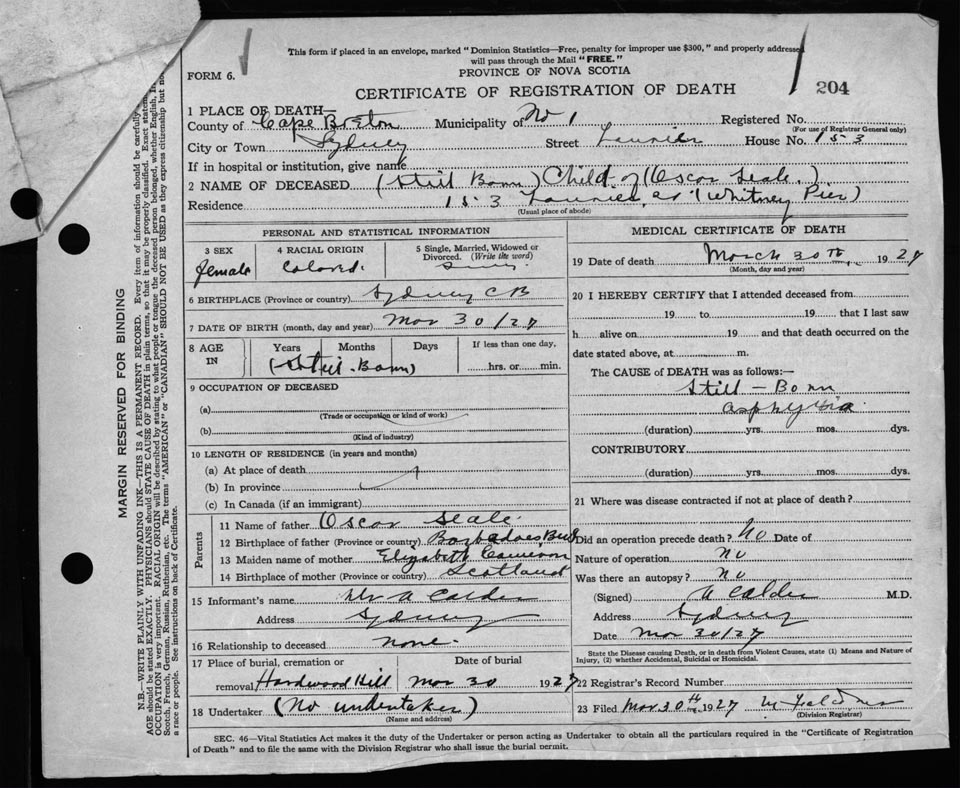 This form if placed in an envelope, marked "Dominion Statistics—Free, penalty for improper use $300," and properly addressed
will pass through the Mail "FREE."
FORM 6.
PROVINCE OF NOVA SCOTIA
CERTIFICATE OF REGISTRATION OF DEATH
204
1 PLACE OF DEATH—
County of Cape Breton Municipality of No 1 Registered No.
(For use of Registrar General only)
City or Town Sydney Street Laurier House No. 153
If in hospital or institution, give name
2 NAME OF DECEASED (Still Born) Child of (Oscar Seale.)
Residence 153 Laurier, (Whitney Pier)
(Usual place of abode)
PERSONAL AND STATISTICAL INFORMATION
3 SEX
female
4 RACIAL ORIGIN
Colored.
5 Single, Married, Widowed or
Divorced. (Write the word)
6 BIRTHPLACE (Province or country) Sydney CB
7 DATE OF BIRTH (month, day and year) Mar 30/27
8 AGE
IN
Years Months Days If less than one day,
(Still-Born) hrs. or min.
9 OCCUPATION OF DECEASED
(a)
(Trade or occupation or kind of work)
(b)
(Kind of industry)
10 LENGTH OF RESIDENCE (in years and months)
(a) At place of death
(b) In province
(c) In Canada (if an immigrant)
Parents
11 Name of father Oscar Seale
12 Birthplace of father (Province or country) Barbadoes
13 Maiden name of mother Elizabeth Cameron
14 Birthplace of mother (Province or country) Scotland
15 Informant's name A Calder
Address Sydney
16 Relationship to deceased none.
17 Place of burial, cremation or Date of burial
removal Hardwood Hill Mar 30 1927
18 Undertaker (No undertaker)
(Name and address)
MEDICAL CERTIFICATE OF DEATH
19 Date of death March 30th, 1927
(Month, day and year)
20 I HEREBY CERTIFY that I attended deceased from
19 to 19 that I last saw
h alive on 19 and that death occurred on the
date stated above, at m.
The CAUSE of DEATH was as follows:—
Still-Born
asphyxia
(duration) yrs. mos. dys.
CONTRIBUTORY
(duration) yrs. mos. dys.
21 Where was disease contracted if not at place of death?
Did an operation precede death? No Date of
Nature of operation No
Was there an autopsy? no
(Signed) A Calder M.D.
Address Sydney
Date Mar 30/27
State the Disease causing Death, or in death from Violent Causes, state (1) Means and Nature of
Injury, (2) whether Accidental, Suicidal or Homicidal.
22 Registrar's Record Number
23 Filed Mar 30th 1927
(Division Registrar)
SEC. 46—Vital Statistics Act makes it the duty of the Undertaker or person acting as Undertaker to obtain all the particulars required in the "Certificate of Registration
of Death" and to file the same with the Division Registrar who shall issue the burial permit.
MARGIN RESERVED FOR BINDING
N.B.—WRITE PLAINLY WITH UNFADING INK—THIS IS A PERMANENT RECORD. Every item of information should be carefully
AGE should be stated EXACTLY. PHYSICIANS should STATE CAUSE OF DEATH in plain terms, so that it may be properly classified. Exact
OCCUPATION is very important. RACIAL ORIGIN will be described by stating to what people or tongue the deceased person belonged, whether English,
Scotch, French, German, Russian, Ruthenian, etc. The terms "AMERICAN" or "CANADIAN" SHOULD NOT BE USED as they express citizenship but
a race or people. See instructions on back of Certificate.